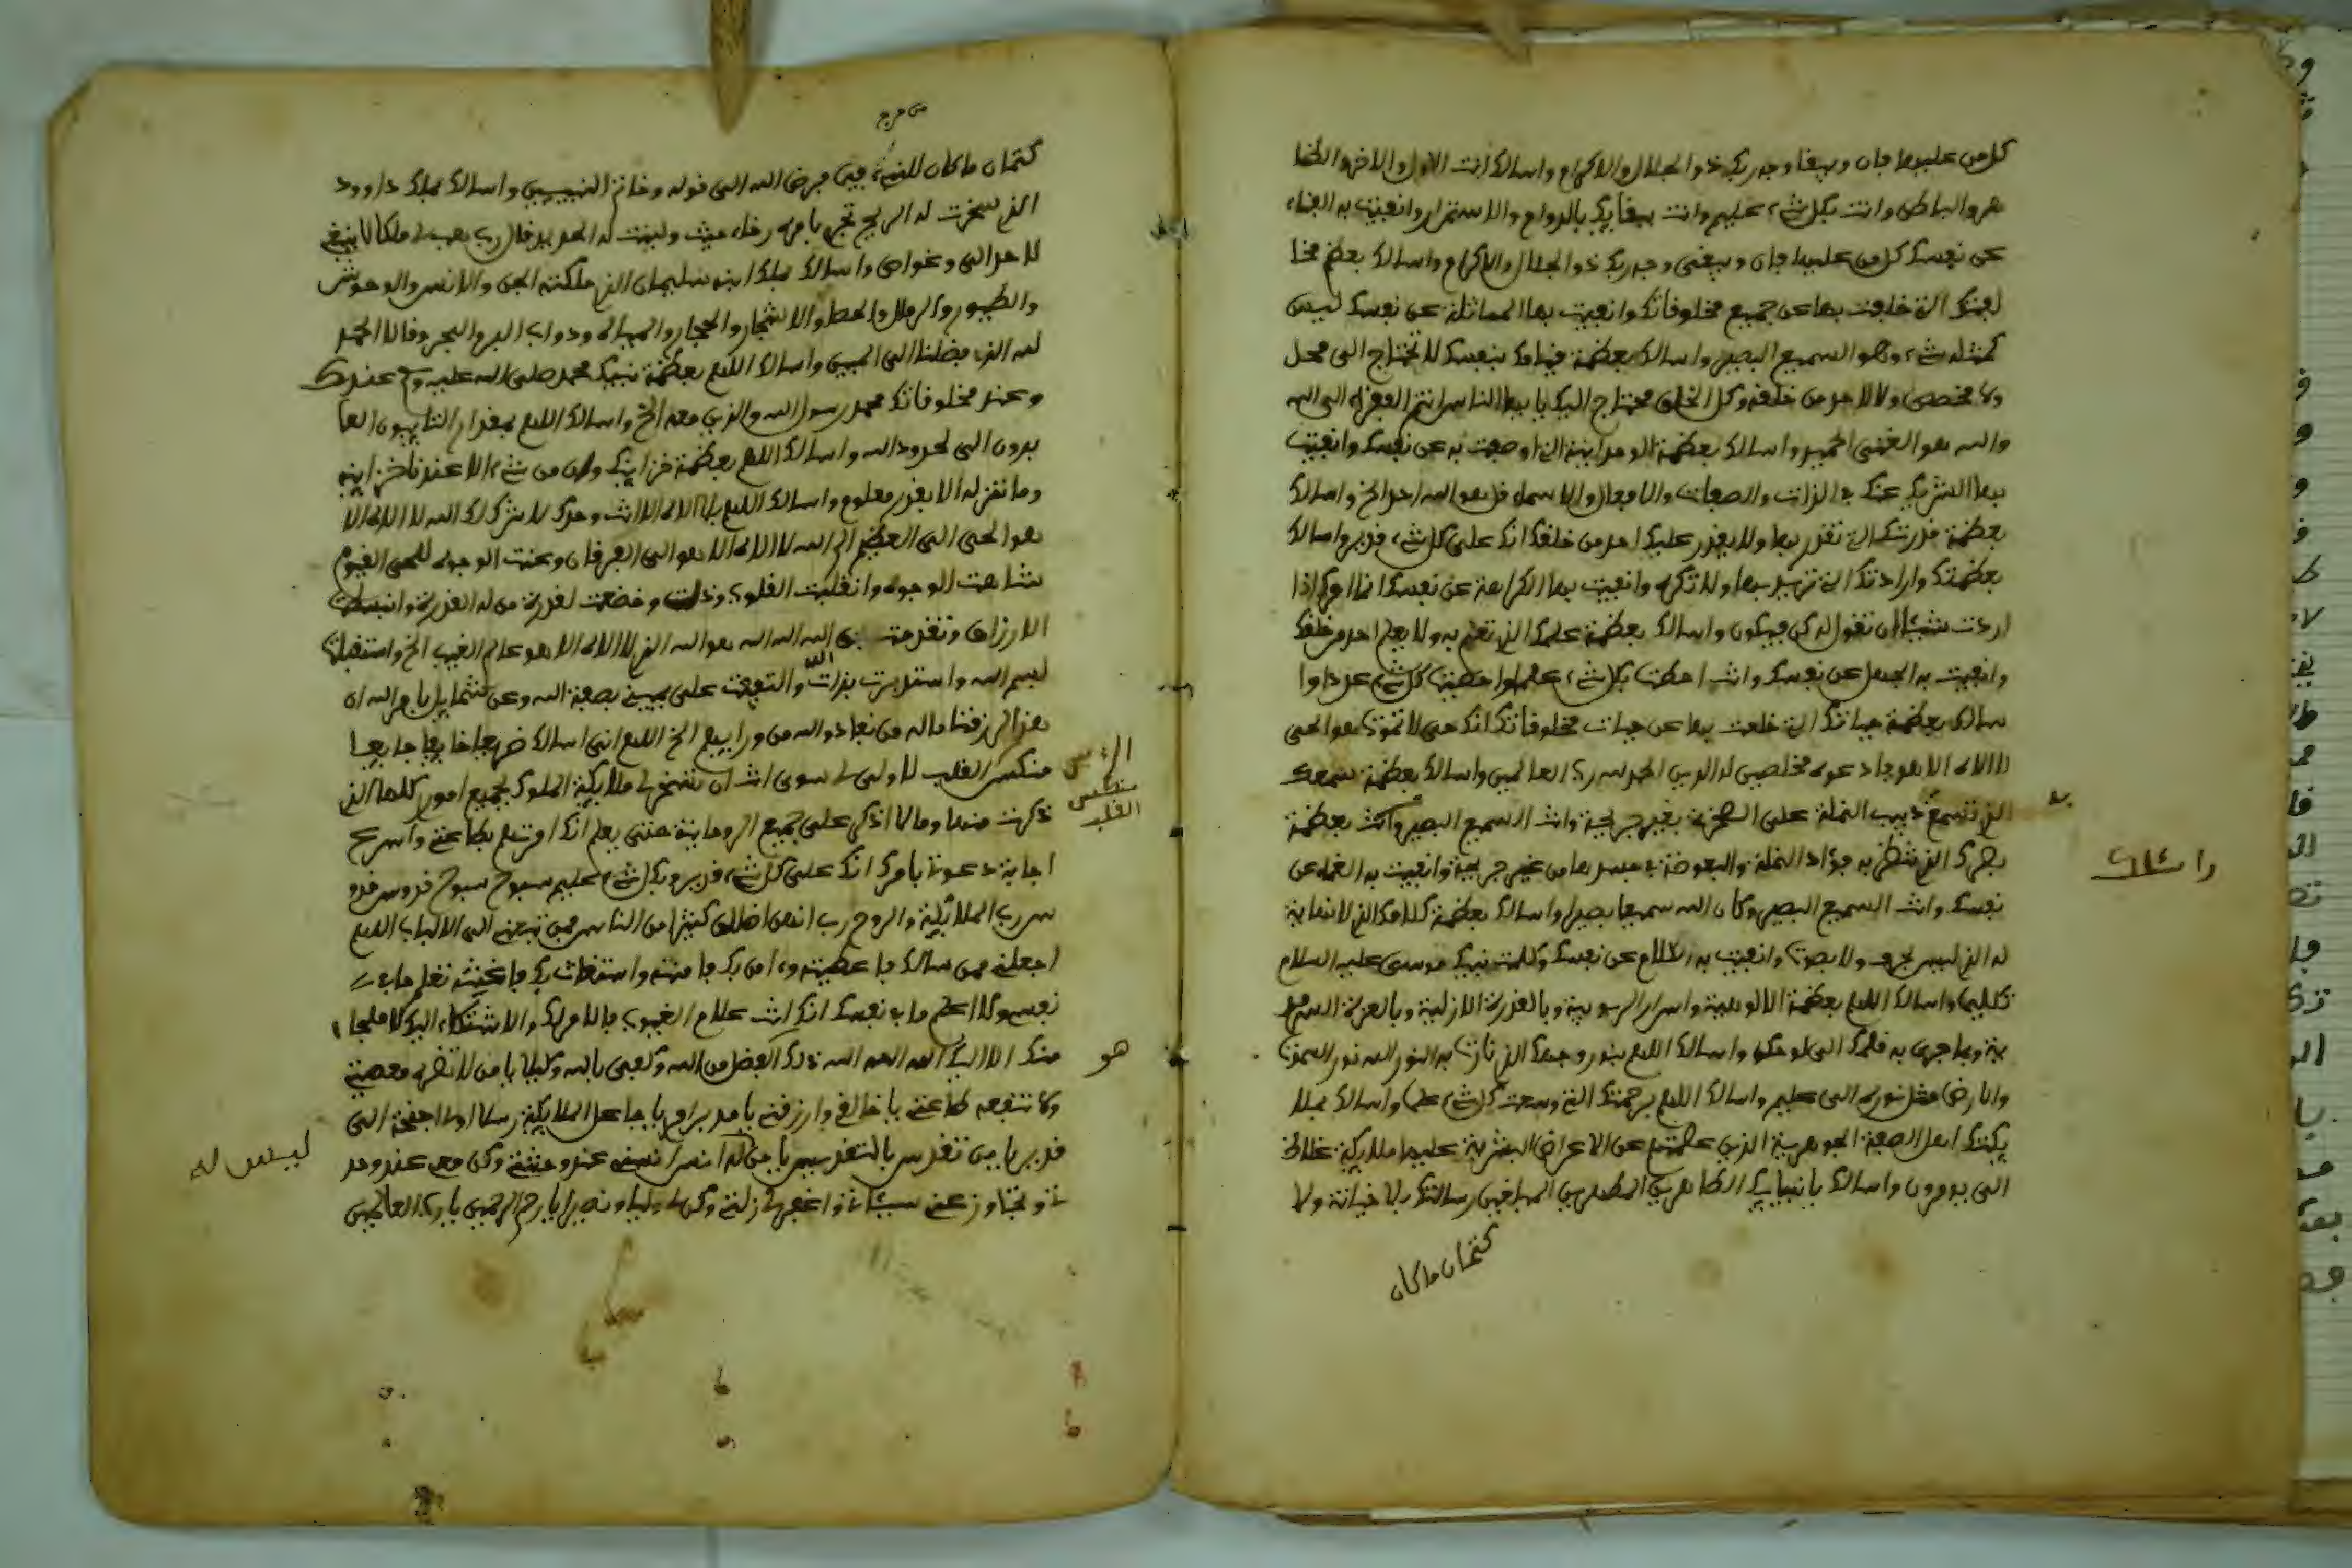 كل من عليها فان ويبقا وجه ربك ذو الجلال والاكرام واسالك انت الاول والاخر والظا
هر والباطن وانت بكل شيء عليم وانت ببقايك بالدوام والاستمرار وانفيت به الفناء
عن نفسك كل من عليها فان ويبقى وجه ربك ذو الجلال والاكرام واسالك بعظم مخا
لفتك التي خالفت بها عن جميع مخلوفاتك وانفيت بها المماثلة عن نفسك ليس
كمثله شيء وهو السميع البصير واسالك بعظمة فيامك بنفسك لا تحتاج الى محل
ولا مخصص ولا لاحد من خلفه وكل الخلق محتاج اليك يا يها الناس انتم الففراء الى الله
والله هو الغني الحميد واسالك بعظمة الوحدانية الذي اوصفت به عن نفسك وانفيت
بها الشريك عنك في الذات والصفات والافعال والاسماء فل هو الله احد الخ واسالك
بعظمة فدرتك التي تفدر بها ولا يفدر عليك احد من خلفك انك على كل شيء فدير واسالك
بعظمتك وارادتك التي تريد بها ولا تكره وانفيت بها الكراهة عن نفسك انما امرك اذا
اردت شيئا ان تفول له كن فيكون واسالك بعظمة علمك الذي تعلم به ولا يعلم احد من خلفك
وانفيت به الجهل عن نفسك وانت احطت بكل شيء علما واحصيت كل شيء عددا وا
سالك بعظمة حياتك التي خالفت بها عن حيات مخلوفاتك انك حي لا تموت هو الحي
لا اله الا هو فادعوه مخلصين له الدين الحمد لله رب العالمين واسالك بعظمة سمعك
الذي تسمع دبيب النملة على الصخرة بغير جريحة وانت السميع البصير وانت بعظمة
بصرك الذي تنظر به فؤاد النملة والبعوضة في جسدها من غير جريحة وانفيت به العما عن
واسالك
نفسك وانت السميع البصير وكان الله سميعا بصيرا واسالك بعظمة كلامك الذي لا نهاية
له الذي ليس بحرف ولا بصوت وانفيت به الكلام عن نفسك وكلمت نبيك موسى عليه السلام
تكليما واسالك اللهم بعظمة الالوهية واسرار الربوبية وبالفدرة الازلية وبالعزة السرمد
ية وبما جرى به فلمك الى لوحك واسالك اللهم بنور وجهك الذي نارت به النور الله نور السموت
والارض مثل نوره الى عليم واسالك اللهم برحمتك التي وسعت كل شيء علما واسالك بملا
يكتك اهل الصفة الجوهرية الذين عصمتهم عن الاعراض البشرية عليها ملايكة غلاظ
الى يومرون واسالك بانبيايك الطاهرين المطهرين المبلغين رسالتك بلا خيانة ولا
كتمان ما كان
من حرج
كتمان ما كان للنبيء فيما فرض الله الى فوله وخاتم النبيين واسالك بملك داوود
الذي سخرت له الريح تجري بامره رخاء حيث ولينت له الحديد فال رب هب لي ملكا لا ينبغي
لاحد الى وغواص واسالك بملك ابنه سليمان الذي ملكته الجن والانس والوحوش
والطيور والرمال والحصا والاشجار والحجار والمياه ودواب البر والبحر وفالا الحمد
لله الذي فضلنا الى المبين واسالك اللهم بعظمة نبيك محمد صلى الله عليه وسلم عندك
وعند مخلوفاتك محمد رسول الله والذين معه الخ واسالك اللهم بمفدار التايبون العا
بدون الى لحدود الله واسالك اللهم بعظمة خزاينك وان من شيء الا عندنا خزاينه
وما ننزله الا بفدر معلوم واسالك اللهم بلا اله الا انت وحدك لا شريك لك الله لا اله الا
هو الحي الى العظيم الم الله لا اله الا هو الى الفرفان وعنت الوجوه للحي الفيوم
شاهت الوجوه وانفلبت الفلوب وذلت وخضعت لفدرة من له الفدرة وانبسطت
الارزاق وتفدمت الله الله الله هو الله الذي لا اله الا هو عالم الغيب الخ واستفبلت
بسم الله واستدبرت بذات الله والتففت على يميني بصفة الله وعن شمايل بامر الله ان
هذا لرزفنا ماله من نفاد والله من ورايهم الخ اللهم اني اسالك ضريعا خايفا خاضعا
منكسر الفلب لا ولي لي سوى انت ان تسخر لي ملايكة الملوك بجميع امور كلها الذي
منكسر
الفلب
ذكرت منها وما لا اذكر على جميع الروحانية حتى يعلم انك امرتهم بطاعتي واسرع
اجابة دعوتي بامرك انك على كل شيء فدير وبكل شيء عليم سبوح سبوح فدوس فدو
س رب الملايكة والروح رب انهن اضللن كثيرا من الناس فمن تبعني الى الالباب اللهم
اجعلني ممن سالك فاعطيته وءامن بك فامنته واستغاث بك فاغثته تعلم ما في
نفسي ولا اعلم ما في نفسك انك انت علام الغيوب فالامر لك والاشتكاء اليك لا ملجا
هو
منك الا اليك الله الله الله ذلك الفضل من الله وكفى بالله وكيلا يا من لا تضره معصيتي
ولا تنفعه طاعتي يا خالفي وارزفني يا مدبر امري يا جاعل الملايكة رسلا اولي اجنحة الى
فدير يا من تفدس بالتفديس يا من له انس انسني عند وحشتي وكن معي عند وحد
ليس له
تي وتجاوز عني سيئاتي واغفر لي زلتي وكن لي وليا ونصيرا يا رحم الرحمين يا رب العالمين